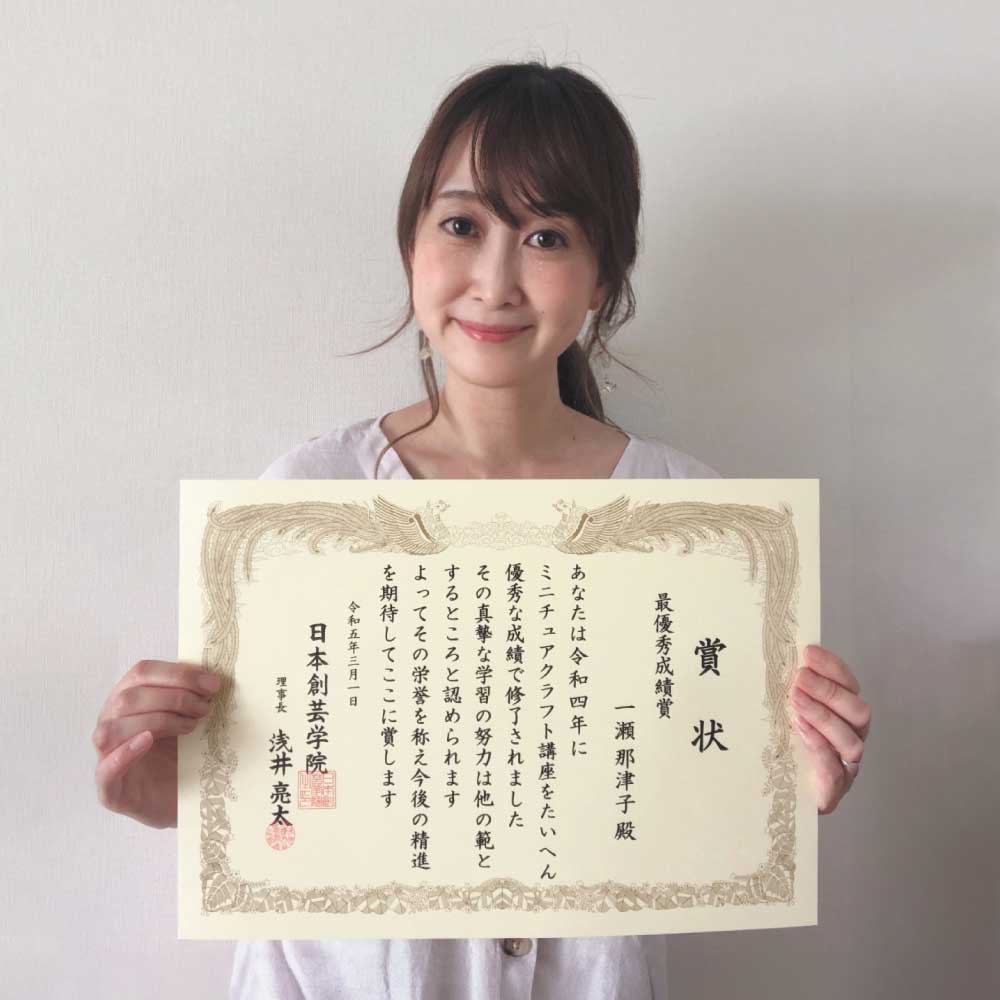 賞状
最優秀成績賞
一瀬那津子殿
あなたは令和四年に
ミニチュアクラフト講座をたいへん
優秀な成績で修了されました
その真摯な学習の努力は他の範と
するところと認められます
よってその栄誉を称え今後の精進
を期待してここに賞します
令和五年三月一日
日本創芸学院
理事長 浅井亮太